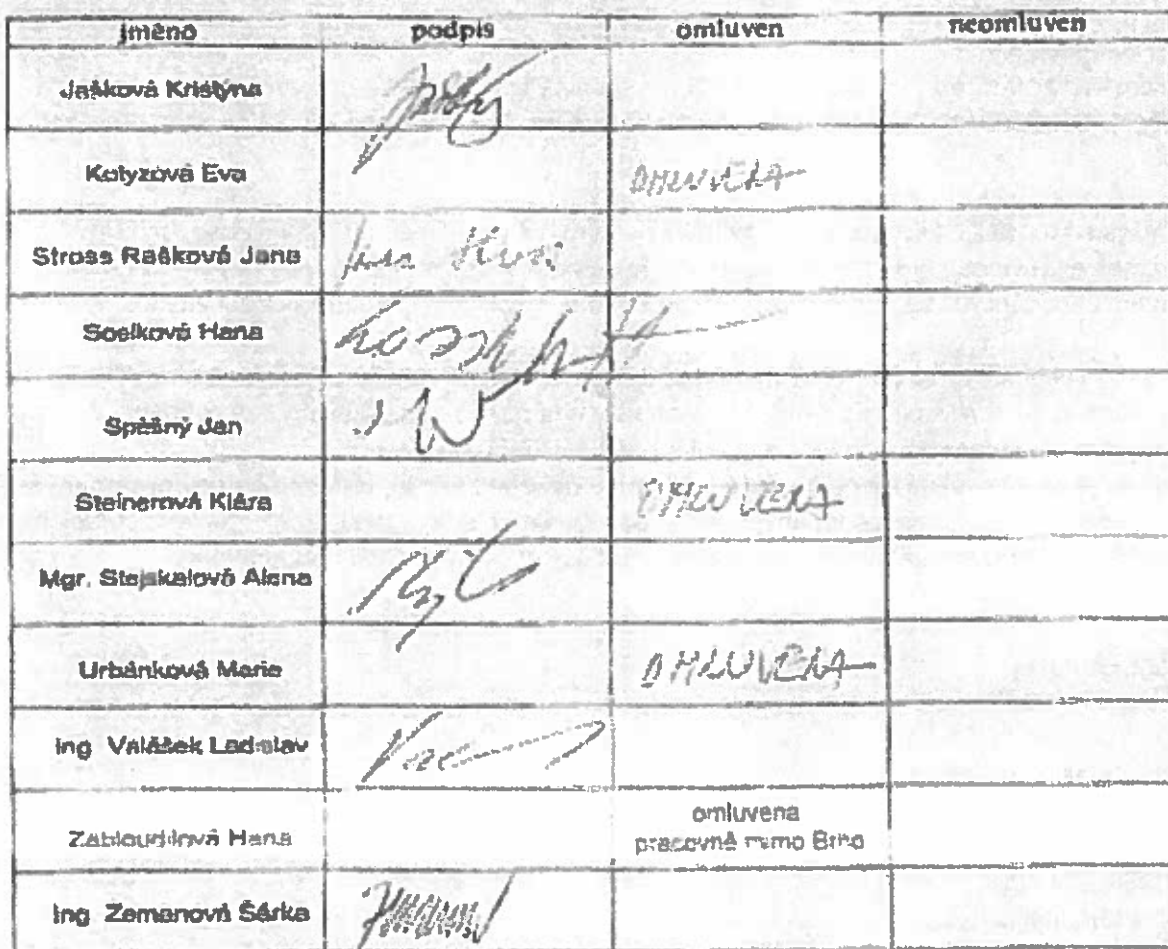 jméno podpis omluven neomluven
Jašková Kristýna
Kotyzová Eva OMLUVENA
Stross Rašková Jana
Soelková Hana
Spěšný Jan
Steinerová Klára OMLUVENA
Mgr. Stejskalová Alena
Urbánková Marie OMLUVENA
Ing Valášek Ladislav
omluvena
Zabloudilová Hana
pracovně mimo Brno
Ing Zemanová Šárka